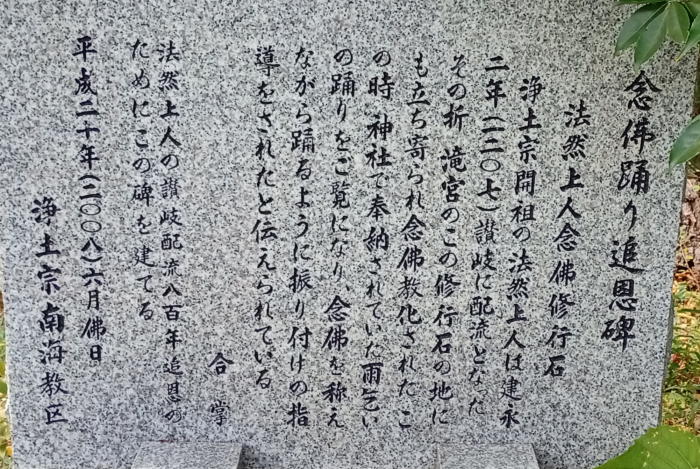 念佛踊り追恩碑
法然上人念佛修行石
浄土宗開祖の法然上人は建永
二年(一二〇七)讃岐に配流となった
その折 滝宮のこの修行石の地に
も立ち寄られ念佛教化された こ
の時 神社で奉納されていた雨乞い
の踊りをご覧になり、念佛を称え
ながら踊るように振り付けの指
導をされたと伝えられている
合掌
法然上人の讃岐配流八百年追恩の
ためにこの碑を建てる
平成二十年(二〇〇八)六月佛日
浄土宗南海教区